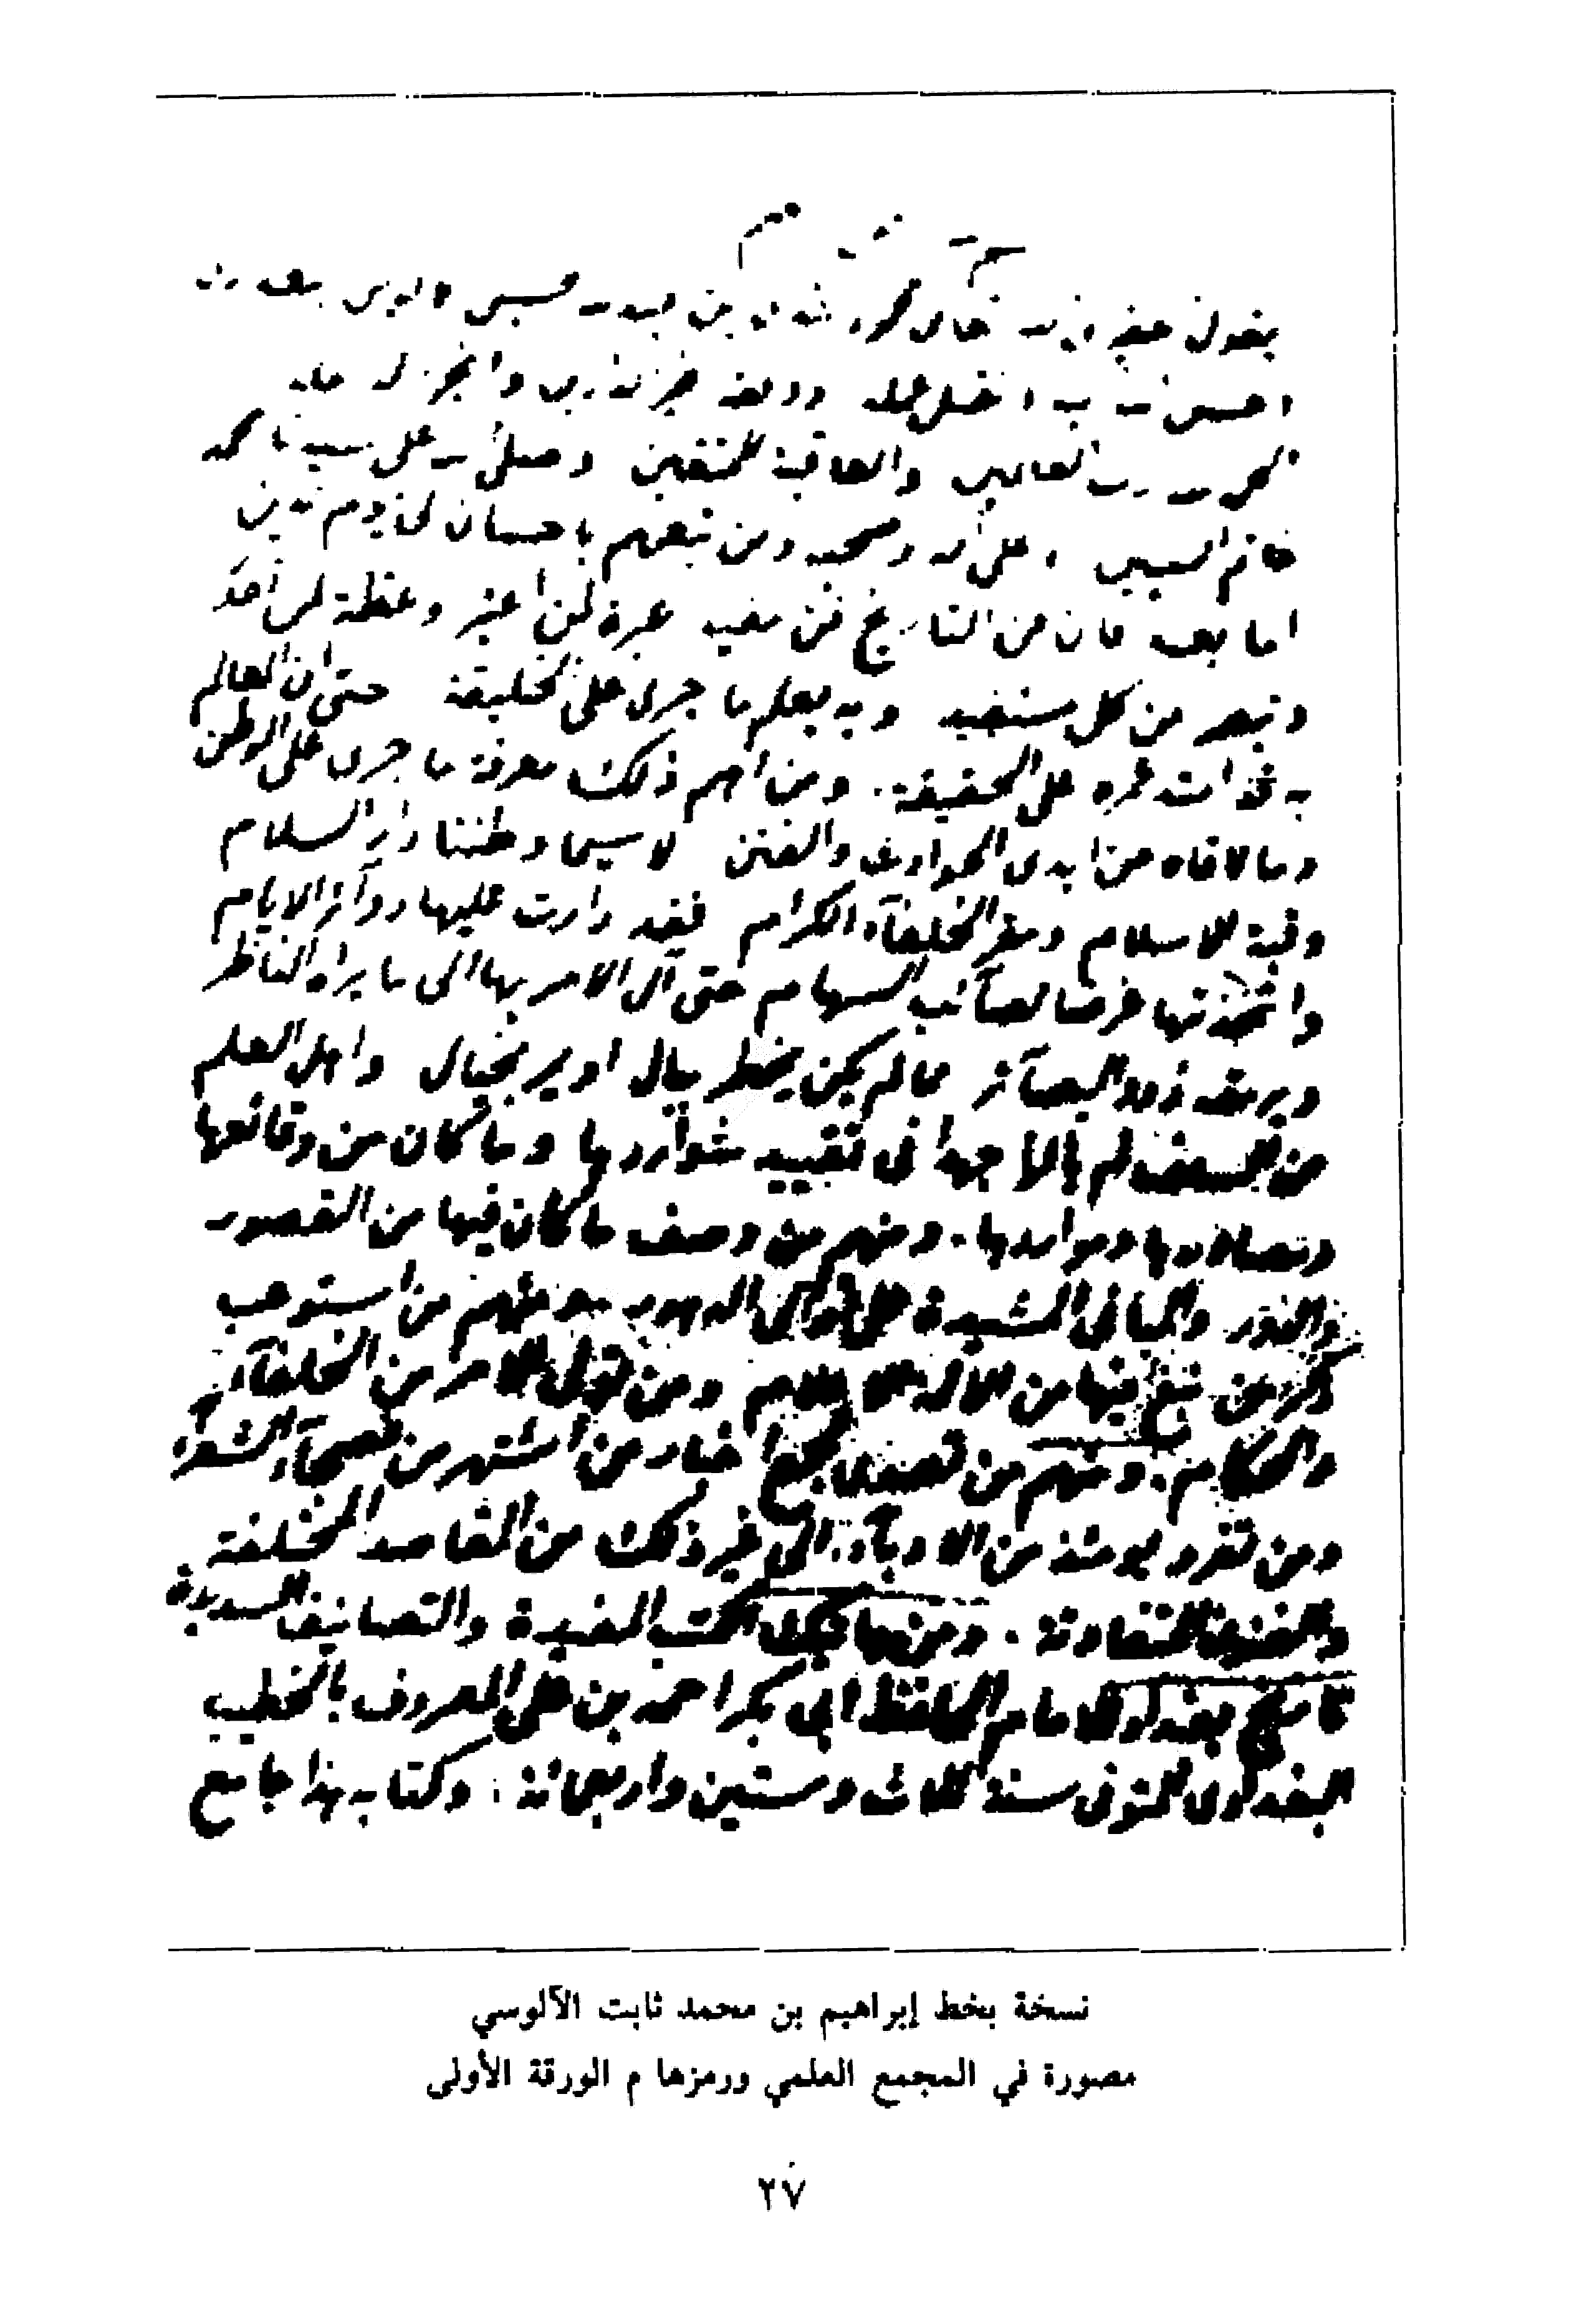 يقول
احسن الله اليه
الحمد لله رب العالمين والعاقبة للمتقين وصلى الله على سيدنا محمد
خاتم النبيين وعلى آله وصحبه ومن تبعهم باحسان الى يوم الدين
اما بعد فان فن التاريخ فن مفيد عبرة لمن اعتبر وعظة لمن
من كل مستفيد وبه يعلم ما جرى على الخليقة حتى ان العالم
به عمره على الحقيقة. ومن اهم ذلك معرفة ما جرى على الوطن
وما لاقاه من ايدى الحوادث والفتن لا سيما وطننا دار السلام
وقبة الاسلام ومقر الخلفآء الكرام فقد دارت عليها دوآئر الايام
واتخذتها غرضا لصآئب السهام حتى آل الامر بها الى ما يراه الناظر
ذوو البصآئر مما لم يكن يخطر ببال او يمر بخيال واهل العلم
من السلف لم يألوا جهدا فى تقييد شواردها وما كان من وقائعها
ومواردها. ومنهم من وصف ما كان فيها من القصور
والدور والمبانى المشيدة على توالى الدهور ومنهم من استوعب
ذكر من نبغ فيها من الاسلام ومن تولى الامر من الخلفآء
والحكام. ومنهم من تصدى لجمع اخبار من اشتهر من فصحآء الشعرآء
ومن تفرد يومئذ من الادبآء. الى غير ذلك من المقاصد المختلفة
والفنون المتفاوتة. ومن هاتيك الكتب المفيدة والتصانيف السديدة
تاريخ بغداد للامام الحافظ ابى بكر احمد بن على المعروف بالخطيب
البغدادى المتوفى سنة ثلاث وستين واربعمائة. وكتابه هذا جامع
نسخة بخط إبراهيم بن محمد ثابت الآلوسي
مصورة في المجمع العلمي ورمزها م الورقة الأولى
٢٧